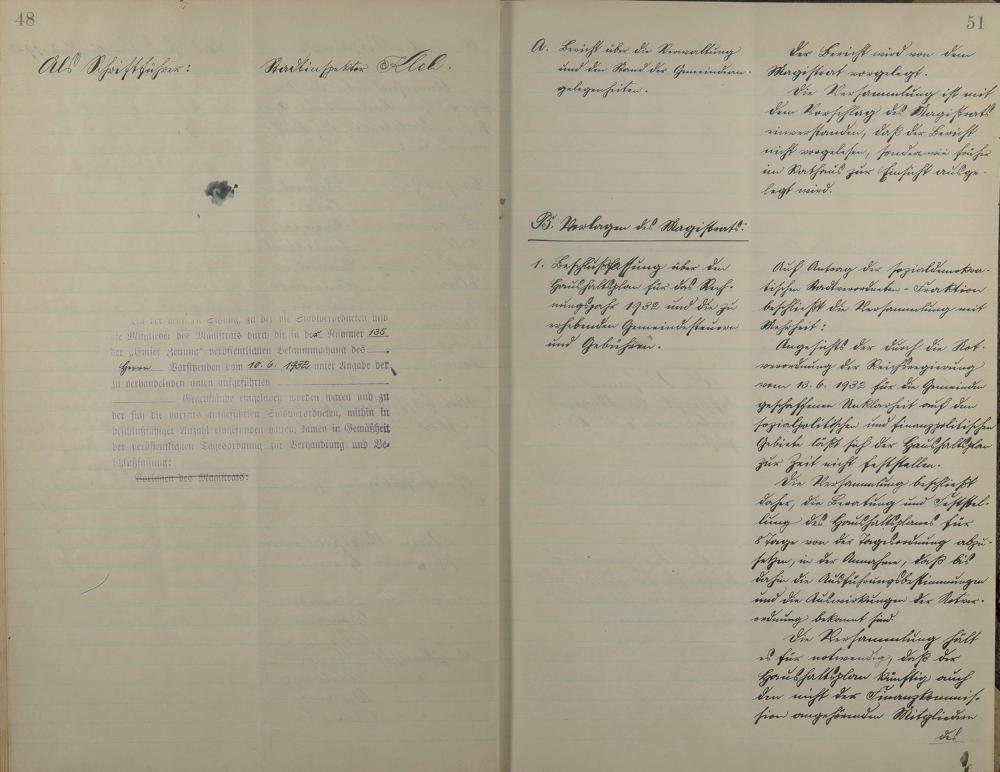 48
Als Schriftführer: Stadtinspektor
Zu der heutigen Sitzung, zu der die Stadtverordneten und
die Mitglieder des Magistrats durch die in der Nummer 135
der „Emser Zeitung“ veröffentlichten Bekanntmachung des
Herrn Vorsitzenden vom 10. 6. 1932 unter Angabe der
zu verhandelnden unten aufgeführten
Gegenstände eingeladen worden waren und zu
der sich die vorseits aufgeführten Stadtverordneten, mithin in
beschlußfähiger Anzahl eingefunden hatten, kamen in Gemäßheit
der veröffentlichten Tagesordnung zur Verhandlung und Be-
schlußfassung:
Vorlagen des Magistrats:
51
A. Bericht über die Verwaltung
und den Stand der Gemeindean-
gelegenheiten.
Der Bericht wird von dem
Magistrat vorgelegt.
Die Versammlung ist mit
dem Vorschlag des Magistrats
einverstanden, daß der Bericht
nicht vorgelesen, sondern wie früher
im Rathaus zur Einsicht ausge-
legt wird.
B. Vorlagen des Magistrats:
1. Beschlußfassung über den
Haushaltsplan für das Rech-
nungsjahr 1932 und die zu
erhebenden Gemeindesteuern
und Gebühren.
Auf Antrag der sozialdemokra-
tischen Stadtverordneten-Fraktion
beschließt die Versammlung mit
Mehrheit:
Angesichts der durch die Not-
verordnung der Reichsregierung
vom 13. 6. 1932 für die Gemeinden
geschaffenen Unklarheit auf dem
sozialpolitischen und finanzpolitischen
Gebiete läßt sich der Haushaltsplan
zur Zeit nicht feststellen.
Die Versammlung beschließt
daher, die Beratung und Feststel-
lung des Haushaltsplanes für
8 Tage von der Tagesordnung abzu-
setzen, in der Annahme, daß bis
dahin die Ausführungsbestimmungen
und die Auswirkungen der Notver-
ordnung bekannt sind.
Die Versammlung hält
es für notwendig, daß der
Haushaltsplan künftig auch
den nicht der Finanzkommis-
sion angehörenden Mitgliedern
des